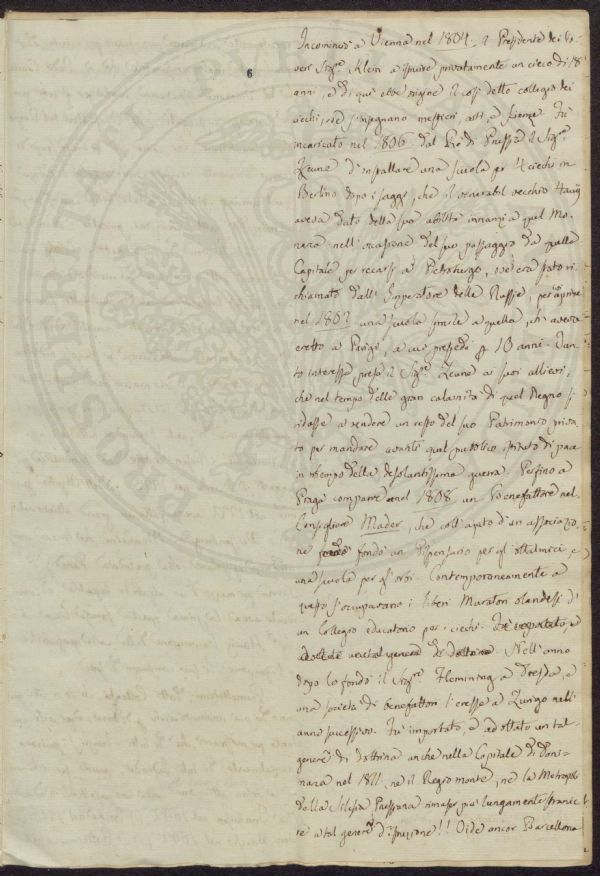 6
Incominciò a Vienna nel 1804 il Presidente dei Po-
veri Sigr. Klein a istruire privatamente un cieco di 18
anni, e di qui ebbe origine il così detto collegio dei
ciechi, ove s'insegnano mestieri, arti, e scienze. Fù
incaricato nel 1806 dal Rè di Prussia il Sigr.
Zeune d'installare una scuola per 4 ciechi in
Berlino dopo i saggi, che il venerabil vecchio Haüy
aveva dato della sua abilità innanzi a quel Mo-
narca nell'occasione del suo passaggio da quella
Capitale per recarsi a Petroburgo, ov'era stato ri-
chiamato dall'Imperatore delle Russie, per aprire
nel 1807 una scuola simile a quella, ch'aveva
eretto a Parigi, a cui presiedè 10 anni. Tan-
to interesse prese il Sigr. Zeune a suoi allievi,
che nel tempo delle gran calamità di quel Regno si
ridusse a vendere un resto del suo Patrimonio priva-
to per mandare avanti quel pubblico istituto di pace
in tempo della desolantissima guerra. Perfino a
Praga comparve nel 1808 un Benefattore nel
Consigliere Mader, che coll'ajuto d'un associazio-
ne fondò un Dispensario per gl'ottalmici e
una scuola per gl'orbi. Contemporaneamente a
questo s'occupavano i liberi Muratori olandesi di
un Collegio educatorio per i ciechi.
Nell'anno
dopo lo fondò il Sigr. Flemming a Dresda, e
una società di benefattori l'eresse a Zurigo nell'
anno successivo. Fù importato, e adottato un tal
genere di dottrina anche nella Capitale di Dani-
marca nel 1811, nè il Regiomonte, nè la Metropoli
della Silesia Prussiana rimaser più lungamente stranie-
re a tal genere d'istruzione!! Vide ancor Barcellona